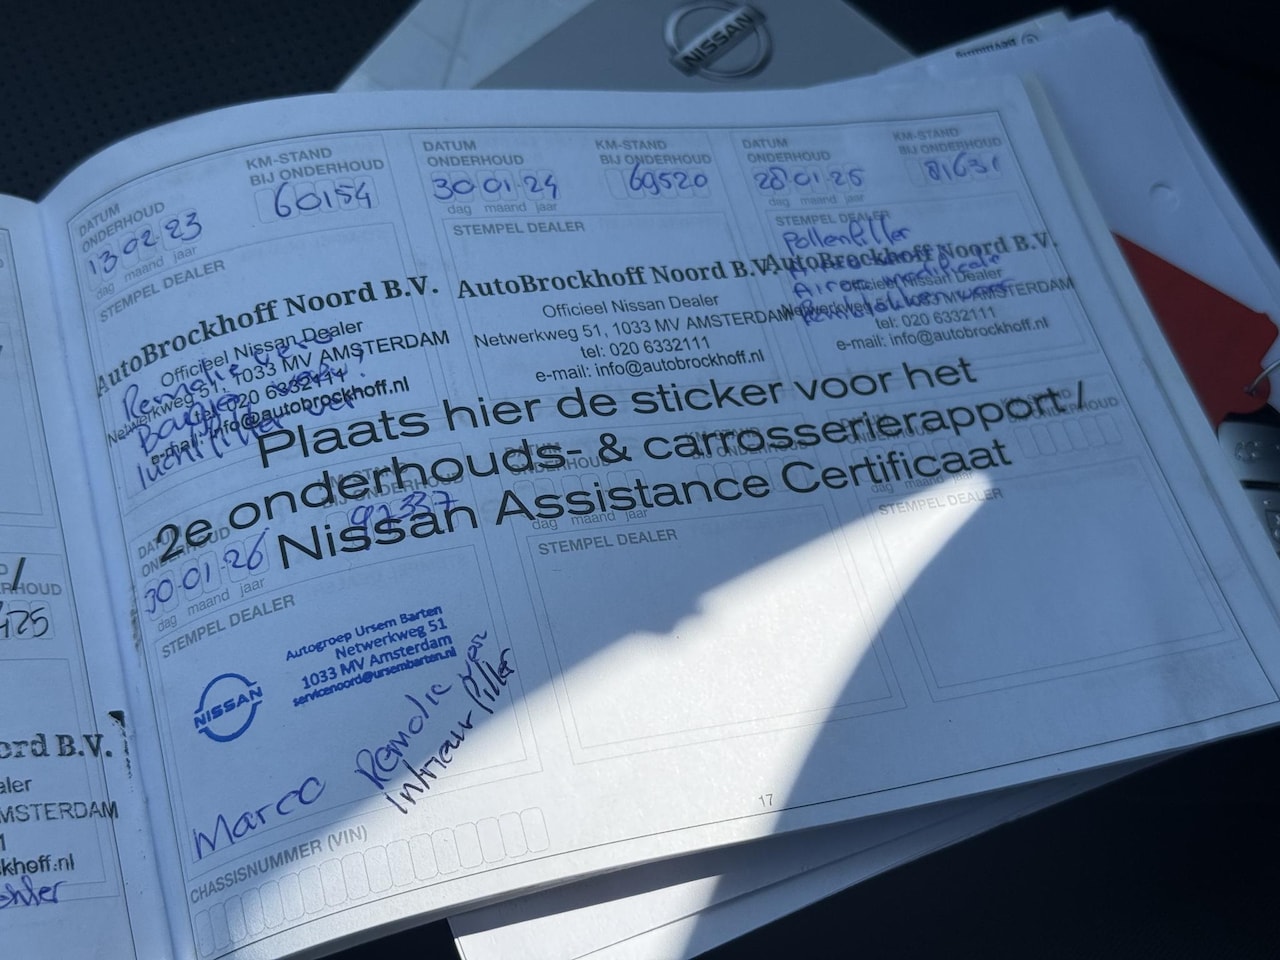 NISSAN
DATUM
ONDERHOUD
KM-STAND
BIJ ONDERHOUD
13 02 23
60154
dag maand jaar
STEMPEL DEALER
AutoBrockhoff Noord B.V.
Officieel Nissan Dealer
Netwerkweg 51, 1033 MV AMSTERDAM
tel: 020 6332111
e-mail: info@autobrockhoff.nl
Remolie
luchtfilter
DATUM
ONDERHOUD
KM-STAND
BIJ ONDERHOUD
30 01 24
69520
dag maand jaar
STEMPEL DEALER
AutoBrockhoff Noord B.V.
Officieel Nissan Dealer
Netwerkweg 51, 1033 MV AMSTERDAM
tel: 020 6332111
e-mail: info@autobrockhoff.nl
DATUM
ONDERHOUD
KM-STAND
BIJ ONDERHOUD
28 01 25
81631
dag maand jaar
STEMPEL DEALER
Pollenfilter
AutoBrockhoff Noord B.V.
Officieel Nissan Dealer
Netwerkweg 51, 1033 MV AMSTERDAM
tel: 020 6332111
e-mail: info@autobrockhoff.nl
Plaats hier de sticker voor het
2e onderhouds- & carrosserierapport /
Nissan Assistance Certificaat
DATUM
ONDERHOUD
KM-STAND
BIJ ONDERHOUD
30-01-26
92337
dag maand jaar
STEMPEL DEALER
NISSAN
Autogroep Ursem Barten
Netwerkweg 51
1033 MV Amsterdam
servicenoord@ursembarten.nl
Marco Remolie voor
Intrieur filter
DATUM
ONDERHOUD
KM-STAND
BIJ ONDERHOUD
dag maand jaar
STEMPEL DEALER
DATUM
ONDERHOUD
KM-STAND
BIJ ONDERHOUD
dag maand jaar
STEMPEL DEALER
CHASSISNUMMER (VIN)
17
/
RHOUD
425
ord B.V.
aler
MSTERDAM
1
khoff.nl